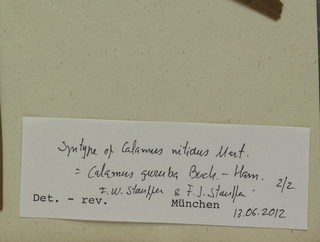 Syntype of Calamus nitidus Mart.
= Calamus guruba Buch. - Ham.
F.W. Stauffer & F.J. Stauffer 2/2
Det. - rev. München
13.06.2012